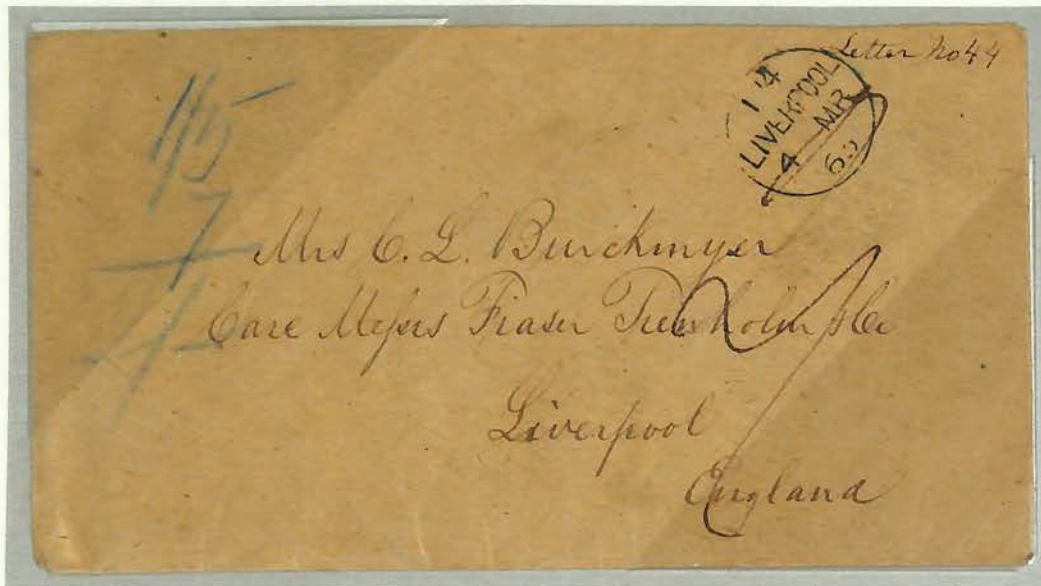 Letter No 44
LIVERPOOL
4 MR
Mrs C. L. Burckmyer
Care Messrs Fraser Trenholm & Co
Liverpool
England